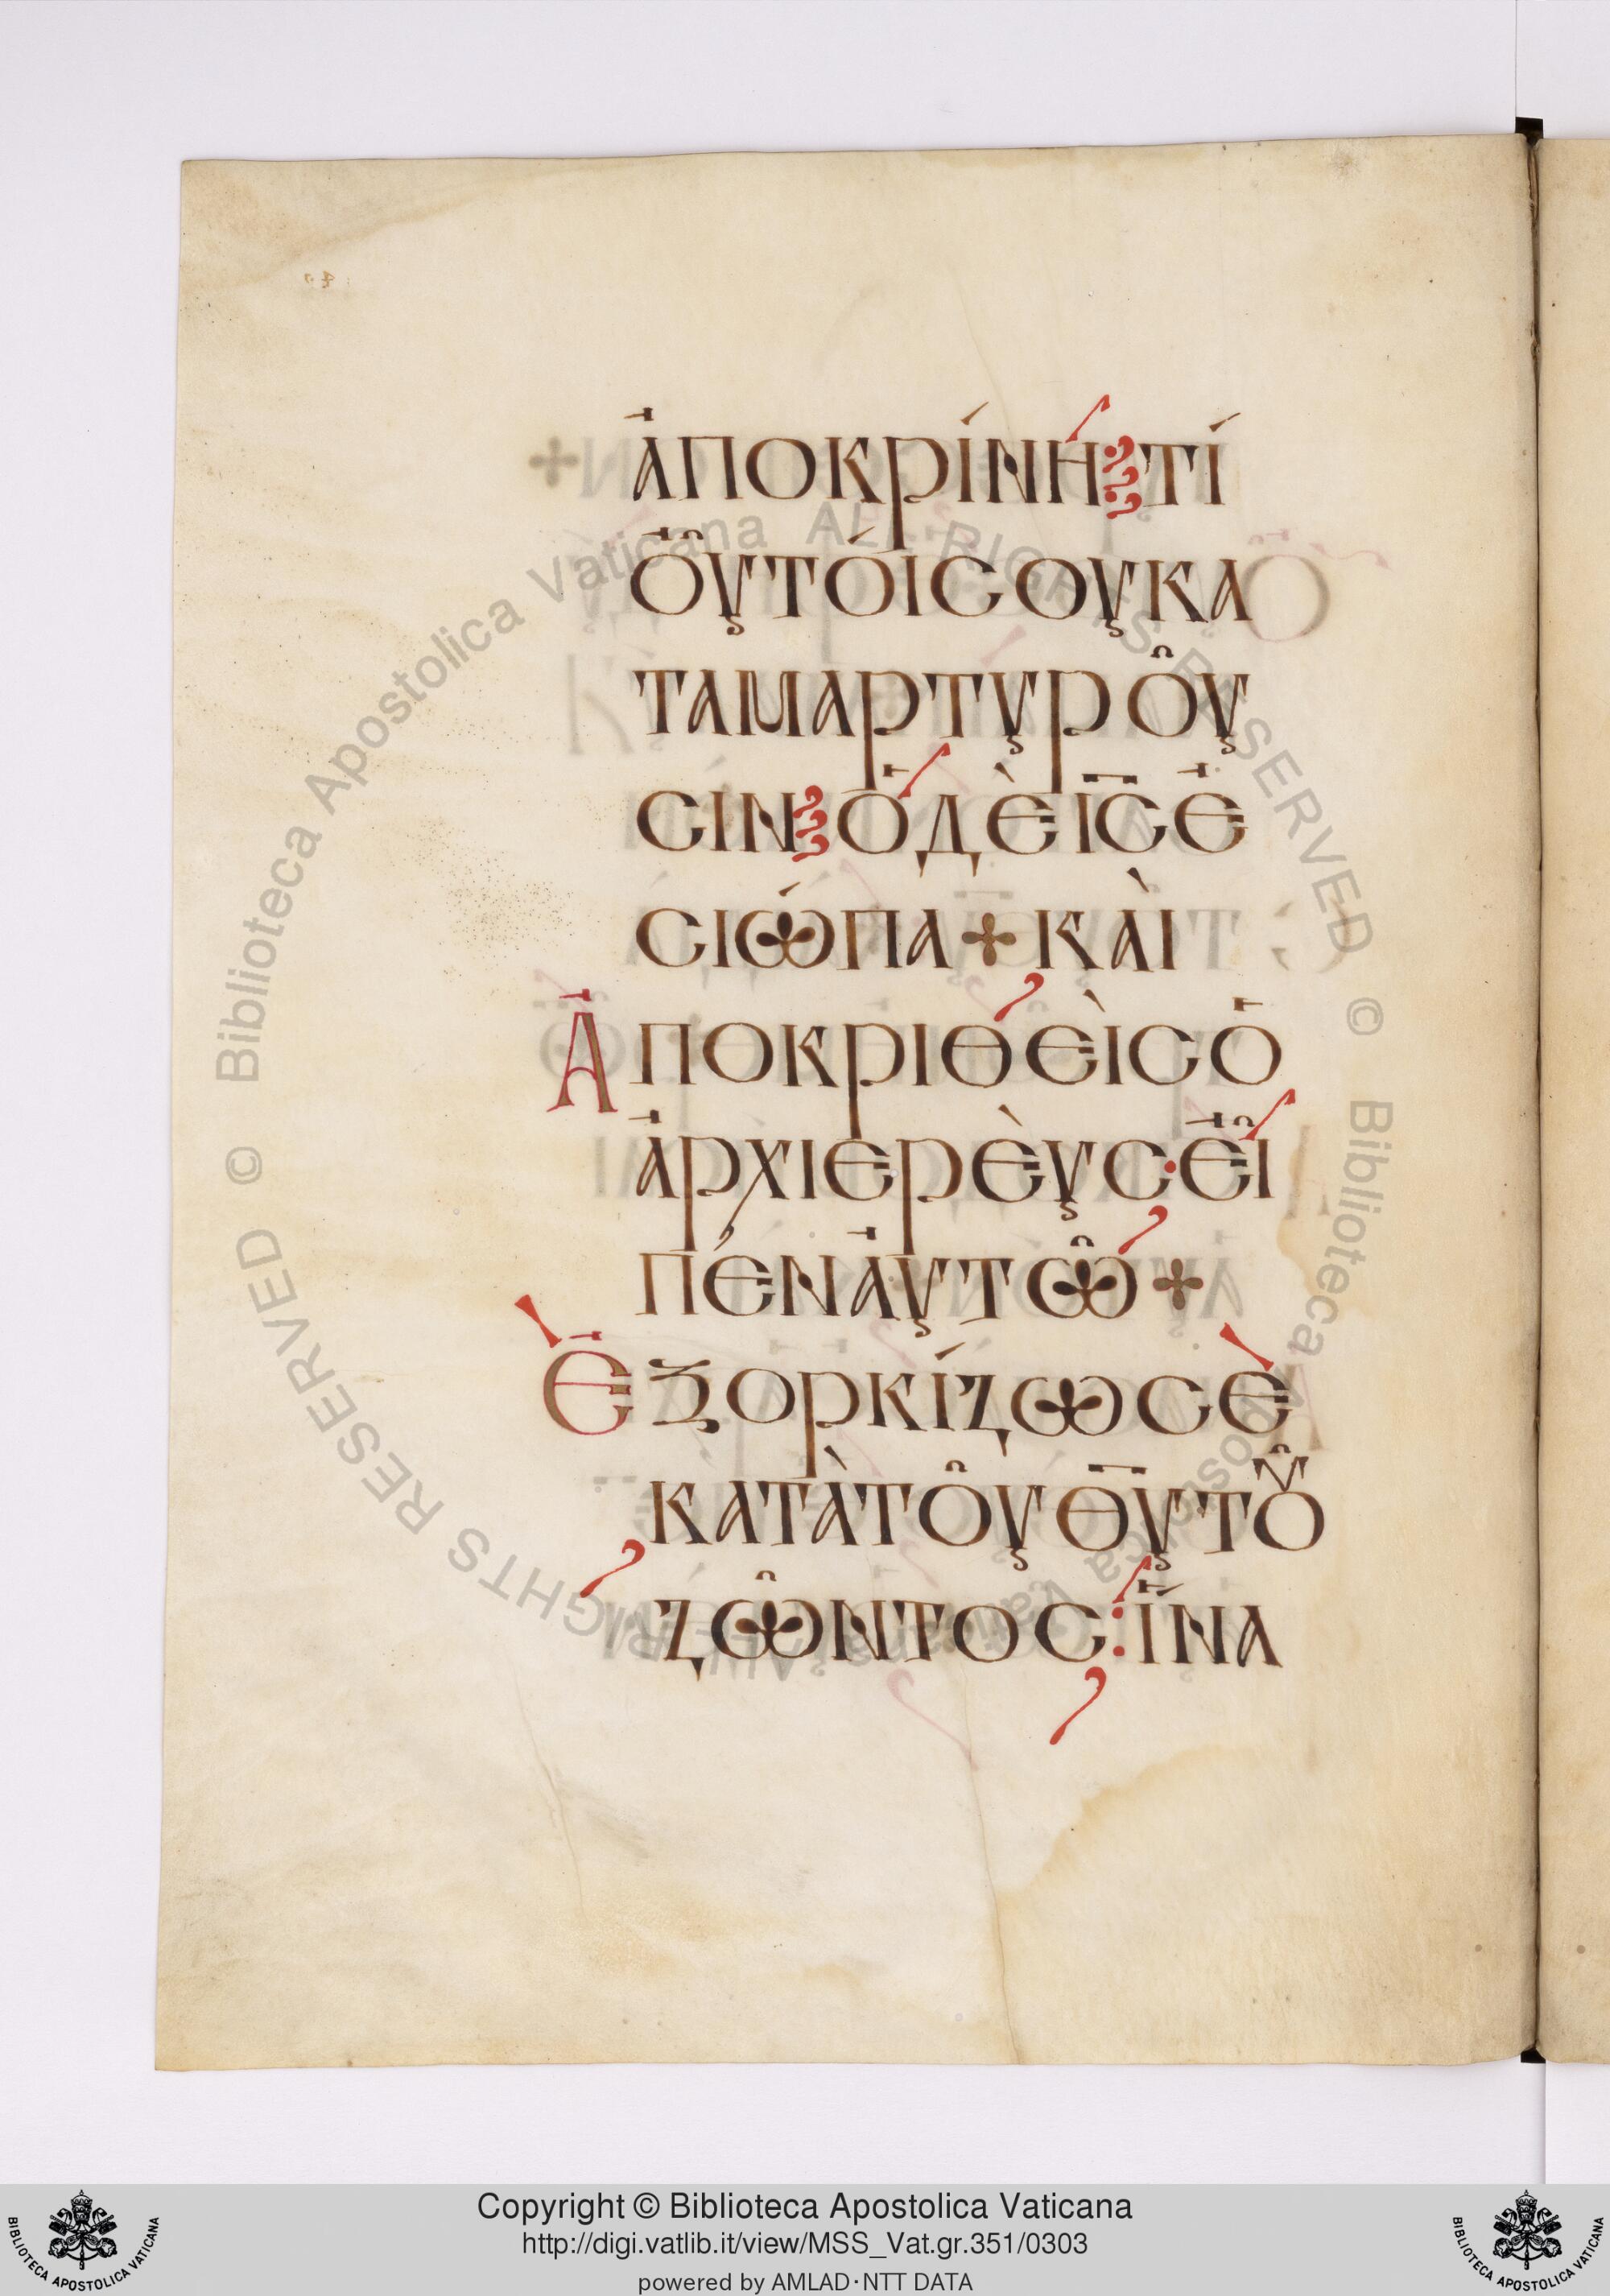 ἀποκρίνη τί
οὗτοί σου κα
ταμαρτυροῦ
σιν ὁ δὲ ΙC ἐ
σιώπα + καὶ
Ἀποκριθεὶς ὁ
ἀρχιερεὺς· εἶ
πεν ἀυτῶ +
Ἐξορκίζω σὲ
κατὰ τοῦ ΘΥ τοῦ
ζῶντος: ἵνα
Biblioteca Apostolica Vaticana ALL RIGHTS RESERVED © Biblioteca Apostolica Vaticana ALL RIGHTS RESERVED ©
Copyright © Biblioteca Apostolica Vaticana
http://digi.vatlib.it/view/MSS_Vat.gr.351/0303
powered by AMLAD·NTT DATA
BIBLIOTECA APOSTOLICA VATICANA
BIBLIOTECA APOSTOLICA VATICANA